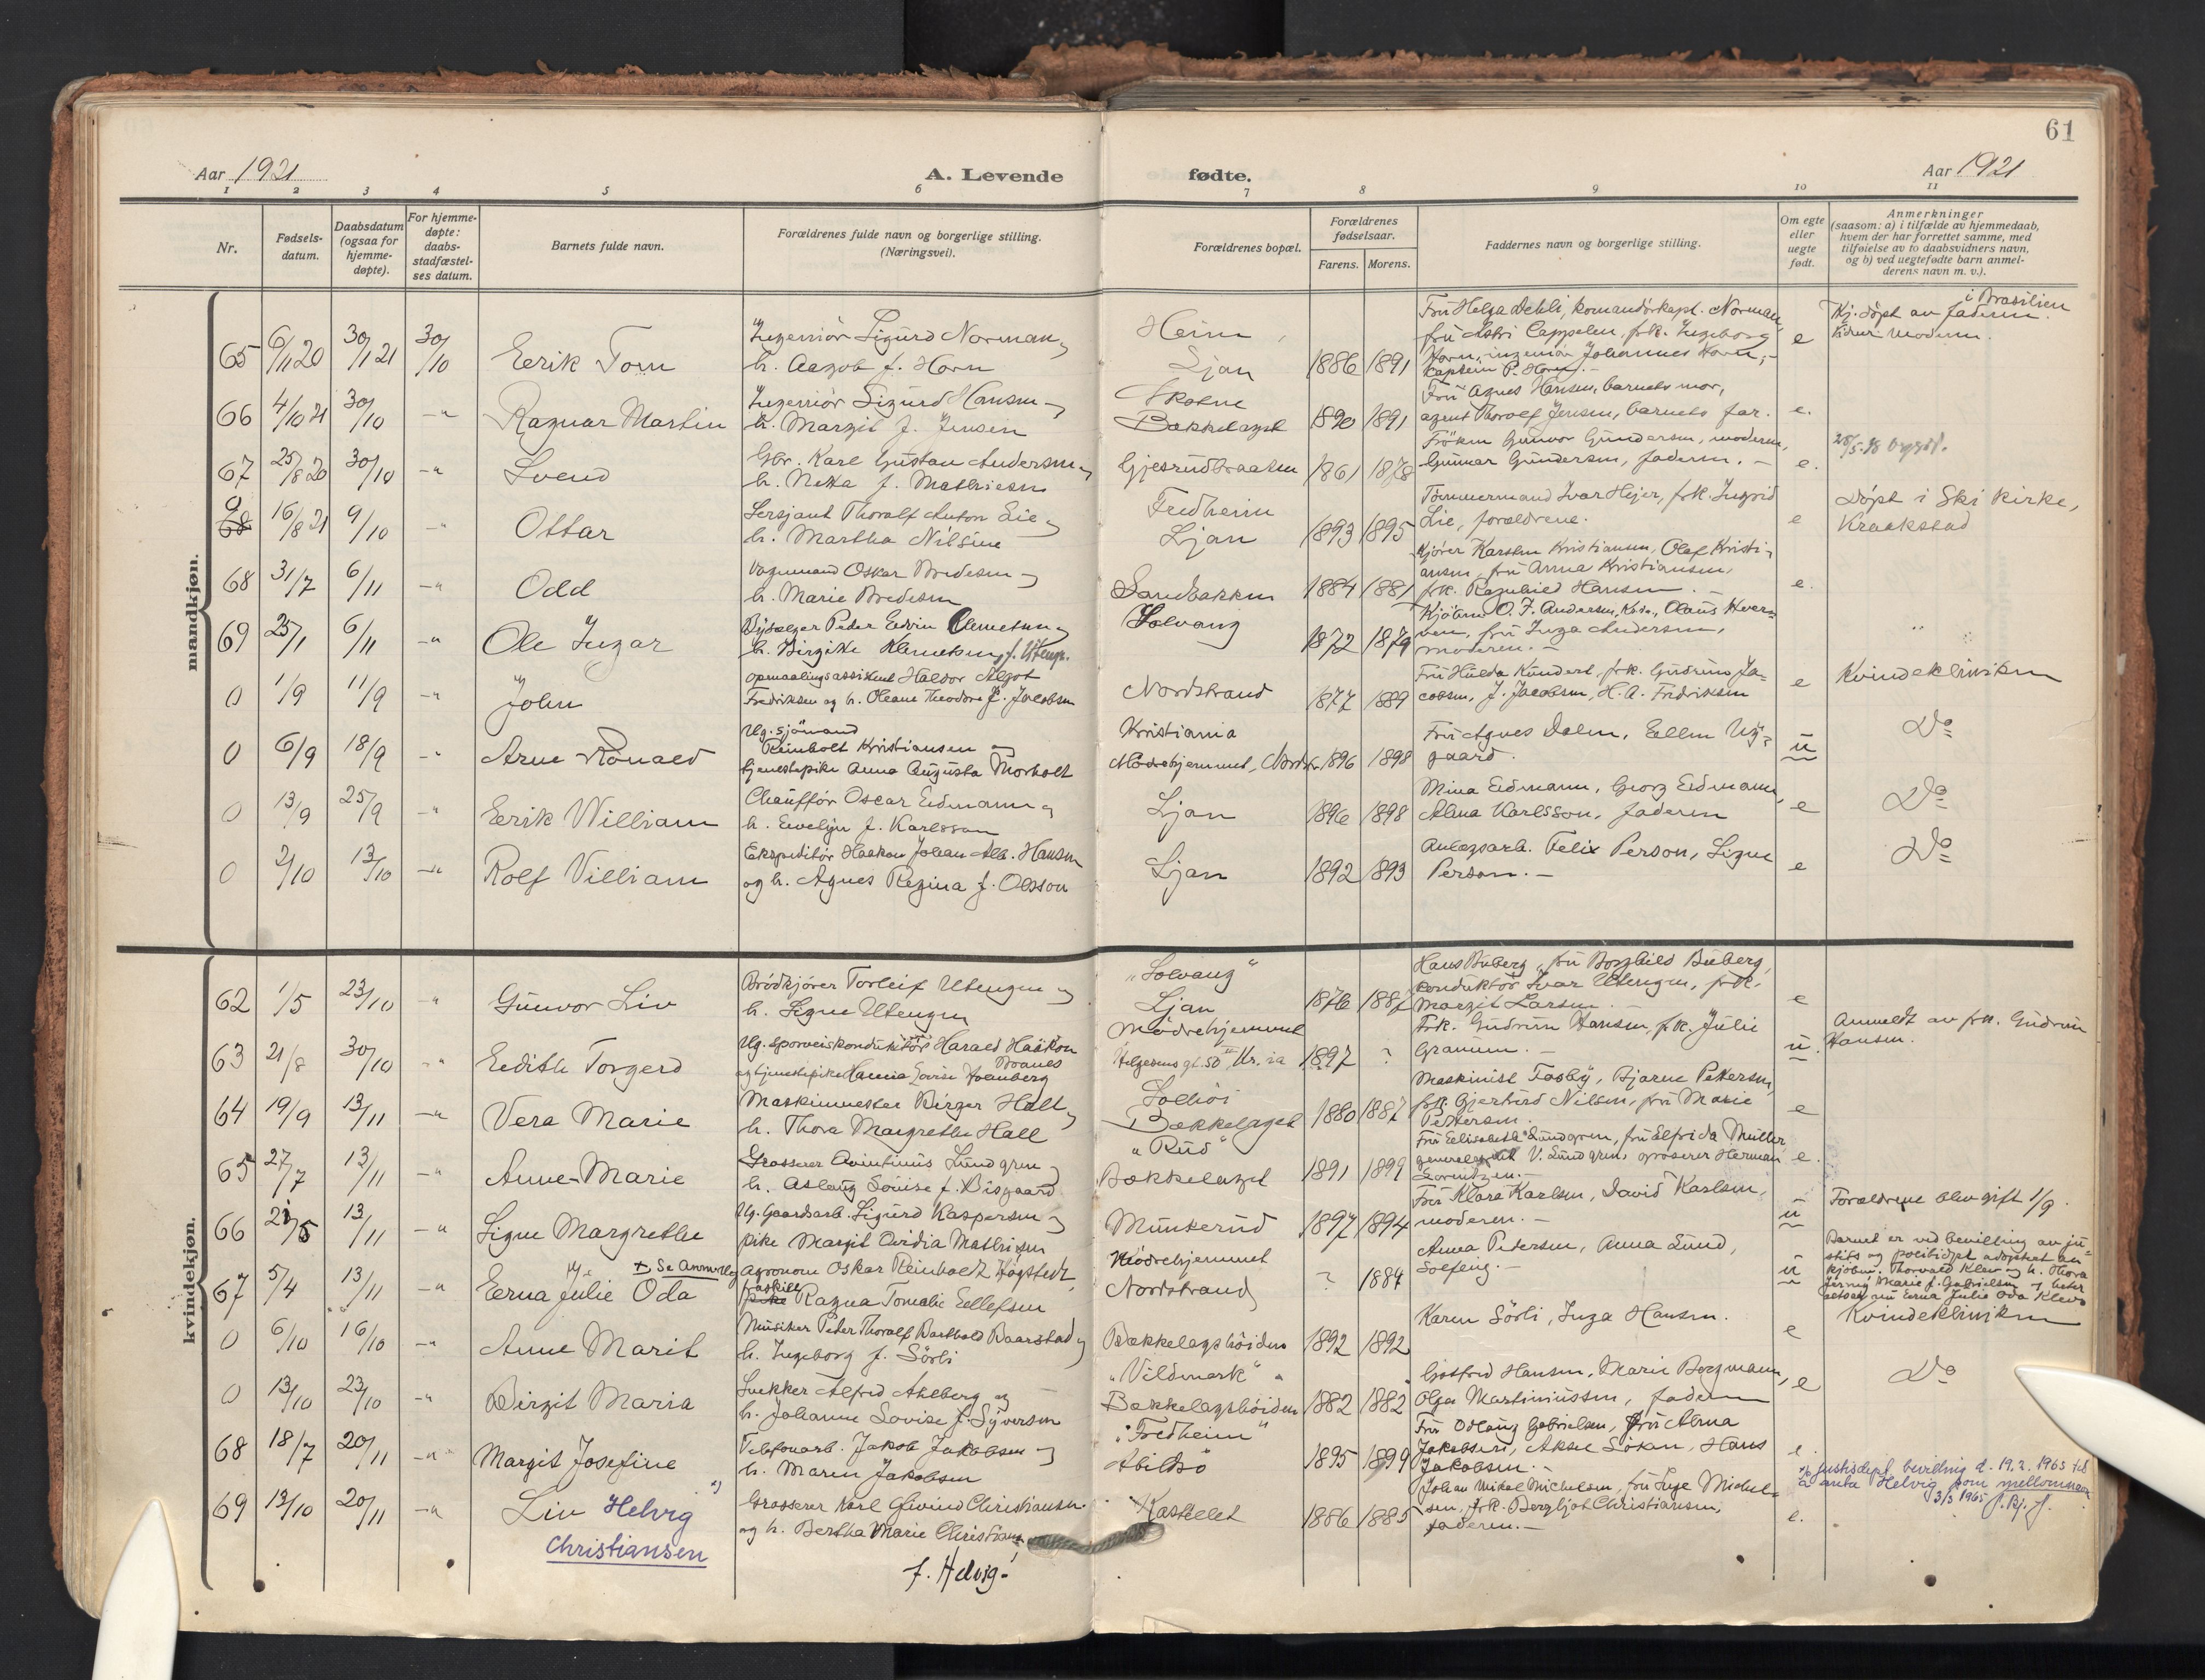 61
Aar 1921
A. Levende fødte.
Aar 1921
1 2 3 4 5 6 7 8 9 10 11
Nr.
Fødsels-
datum.
Daabsdatum
(ogsaa for
hjemme-
døpte).
For hjemme-
døpte:
daabs-
stadfæstel-
ses datum.
Barnets fulde navn.
Forældrenes fulde navn og borgerlige stilling.
(Næringsvei).
Forældrenes bopæl.
Forældrenes
fødselsaar.
Farens. Morens.
Faddernes navn og borgerlige stilling.
Om egte
eller
uegte
født.
Anmerkninger
(saasom: a) i tilfælde av hjemmedaab,
hvem der har forrettet samme, med
tilføielse av to daabsvidners navn,
og b) ved uegtefødte barn anmel-
derens navn m. v.).
mandkjøn.
65 6/11 20 30/1 21 30/10 Eerik Tom
Ingeniör Sigurd Norman
h. Aagot f. Horn
Heim
Ljan
1886 1891
Fru Helga Dehli, komandörkapt. Norman,
fru Astri Cappelen, frk. Ingeborg
Horn, ingeniör Johannes Horn,
Kaptein P. Horn.-
e
Hj. döpt av faderen i Brasilien.
66 4/10 21 30/10 -"- Ragnar Martin
Ingeniör Sigurd Hansen
h. Margit f. Jensen
Bækkelaget
1890 1891
Fru Agnes Hansen, barnets mor,
agent Thorolf Jensen, barnets far.
e.
67 25/8 20 30/10 -"- Svend
Gbr. Karl Gustav Andersen
h. Netta f. Mathiesen
Gjersrudbraaten
1861 1878
Fröken Gunvor Gundersen, moderen,
Gunnar Gundersen, faderen. -
e.
0 68 16/8 21 9/10 -"- Ottar
Sersjant Thoralf Anton Lie
h. Martha Nilsine
Fredheim
Ljan
1893 1895
Tömmermand Ivar Hejer, frk. Ingrid
Lie, forældrene.
e
Döpt i Ski kirke,
Kraakstad
68 31/7 6/11 -"- Odd
Vognmand Oskar Bredesen
h. Marie Bredesen
Sandbakken
1884 1881
Kjörer Karsten Kristiansen, Olaf Kristi-
ansen, fru Anna Kristiansen,
frk. Ragnhild Hansen. -
e.
69 25/1 6/11 -"- Ole Ingar
Peder Edvin Clemetsen
h. Birgitte Klemetsen, f. Utengen.
Solvang
1872 1879
Kjöbmd O. F. Andersen, Olaus
fru Inga Andersen,
moderen. -
"
0 1/9 11/9 -"- John
Opmaalingsassistent Haldor Algot
Fredriksen og h. Oleane Theodora f. Jacobsen
Nordstrand
1877 1889
Fru Hulda Kundert, frk. Gudrun Ja-
cobsen, J. Jacobsen, H. A. Fredriksen
e
Kvindeklinikken
0 6/9 18/9 -"- Arne Ronald
Ug. sjömand
Reinholt Kristiansen
tjenestepike Anna Augusta Morholt
Kristiania
Mödrehjemmet, Nordstr.
1896 1898
Fru Agnes Dalen, Ellen Ny-
gaard.
u
Do
0 13/9 25/9 " Eerik William
Chaufför Oscar Eidmann
h. Evelyn f. Karlsson
Ljan
1896 1898
Mina Eidmann, Georg Eidmann,
Alma Karlsson, faderen
e
Do
0 2/10 13/10 -"- Rolf Villiam
Ekspeditör Haakon Johan Alb. Hansen
og h. Agnes Regina f. Olsson
Ljan
1892 1893
Anlægsarb. Felix Person, Signe
Person. -
e
Do
kvindekjøn.
62 1/5 23/10 " Gunvor Liv
Brödkjörer Torleif Utengen
h. Signe Utengen
"Solvang"
Ljan
1876 1887
Hans Buberg, fru Borghild Buberg,
konduktör Ivar Utengen, frk.
Margit Larsen. -
e
63 21/8 30/10 " Eedith Torgerd
Ug. Sporveiskonduktör Harald Haakon
og tjenestepike Lovise Holmberg
Mödrehjemmet
Helgesens gt. 50 Kr.ia
1897 ?
Frk. Gudrun Hansen, frk. Julie
Granum. -
u.
Anmeldt av frk. Gudrun
Hansen.
64 19/9 13/11 -"- Vera Marie
Maskinmester Birger Hall
h. Thora Margrethe Hall
Solhöi
Bækkelaget
1880 1887
Maskinist Fosby, Bjarne Pettersen,
frk. Gjertrud Nilsen, fru Marie
Pettersen.
e
65 27/7 13/11 -"- Anne-Marie
Grosserer Lundgren
h. Aslaug Louise f. Bisgaard
"Rud"
Bækkelaget
1891 1899
Fru Eelisabeth Lundgren, fru Elfrida Müller,
generalagent V. Lundgren, grosserer Herman
Lorentzen. -
e.
66 21/5 13/11 -"- Signe Margrethe
Ug. Gaardsarb. Sigurd Kaspersen
pike Margit Ovidia Mathisen
Munkerud
1897 1894
Fru Klara Karlsen, David Karlsen,
moderen. -
u
Forældrene blev gift 1/9.
67 5/4 13/11 -"- Eerna Julie Oda
+ Se Anmerkn.
Agronom Oskar Reinholdt Högstedt,
fraskilt
Ragna Tomalie Eellefsen
Mödrehjemmet
Nordstrand
? 1884
Anna Pedersen, Anna Lund,
Solfeng. -
u
Barnet er ved bevilling av ju-
stits og politidept adoptert av
kjöbm. Thorvald Klev og h. Thora
Jenny Marie f. Gabrielsen og heter
nu Erna Julie Oda Klev
0 6/10 16/10 -"- Anne Marit
Musiker Peder Thoralf Barthold Baarstad
h. Ingeborg f. Sörli
Bækkelagshöiden
1892 1892
Karen Sörli, Inga Hansen.
e
Kvindeklinikken
0 13/10 23/10 -"- Birgit Maria
Snekker Alfred Ahlberg og
h. Johanne Lovise f. Syversen
"Vildmark"
Bækkelagshöiden
1882 1882
Gotfred Hansen, Marie Borgmann,
Olga Martiniussen, faderen
e
Do
68 18/7 20/11 -"- Margit Josefine
Telefonarb. Jakob Jakobsen
h. Maren Jakobsen
"Fredheim"
Abildsö
1895 1899
Fru Odlaug Gabrielsen, fru Alma
Jakobsen, Aksel Hans
Jakobsen. -
e.
69 13/10 20/11 -"- Liv Helvig
Christiansen
Grosserer Karl Eivind Christiansen
og h. Bertha Marie Christians
f. Helvig.
Kastellet
1886 1885
Johan Mikal Michelsen, fru Inge Michel-
sen, frk. Bergljot Christiansen,
faderen. -
e.
Justisdept. bevilling d. 19.2.1965 til
å anta Helvig som mellomnavn
3/3 1965